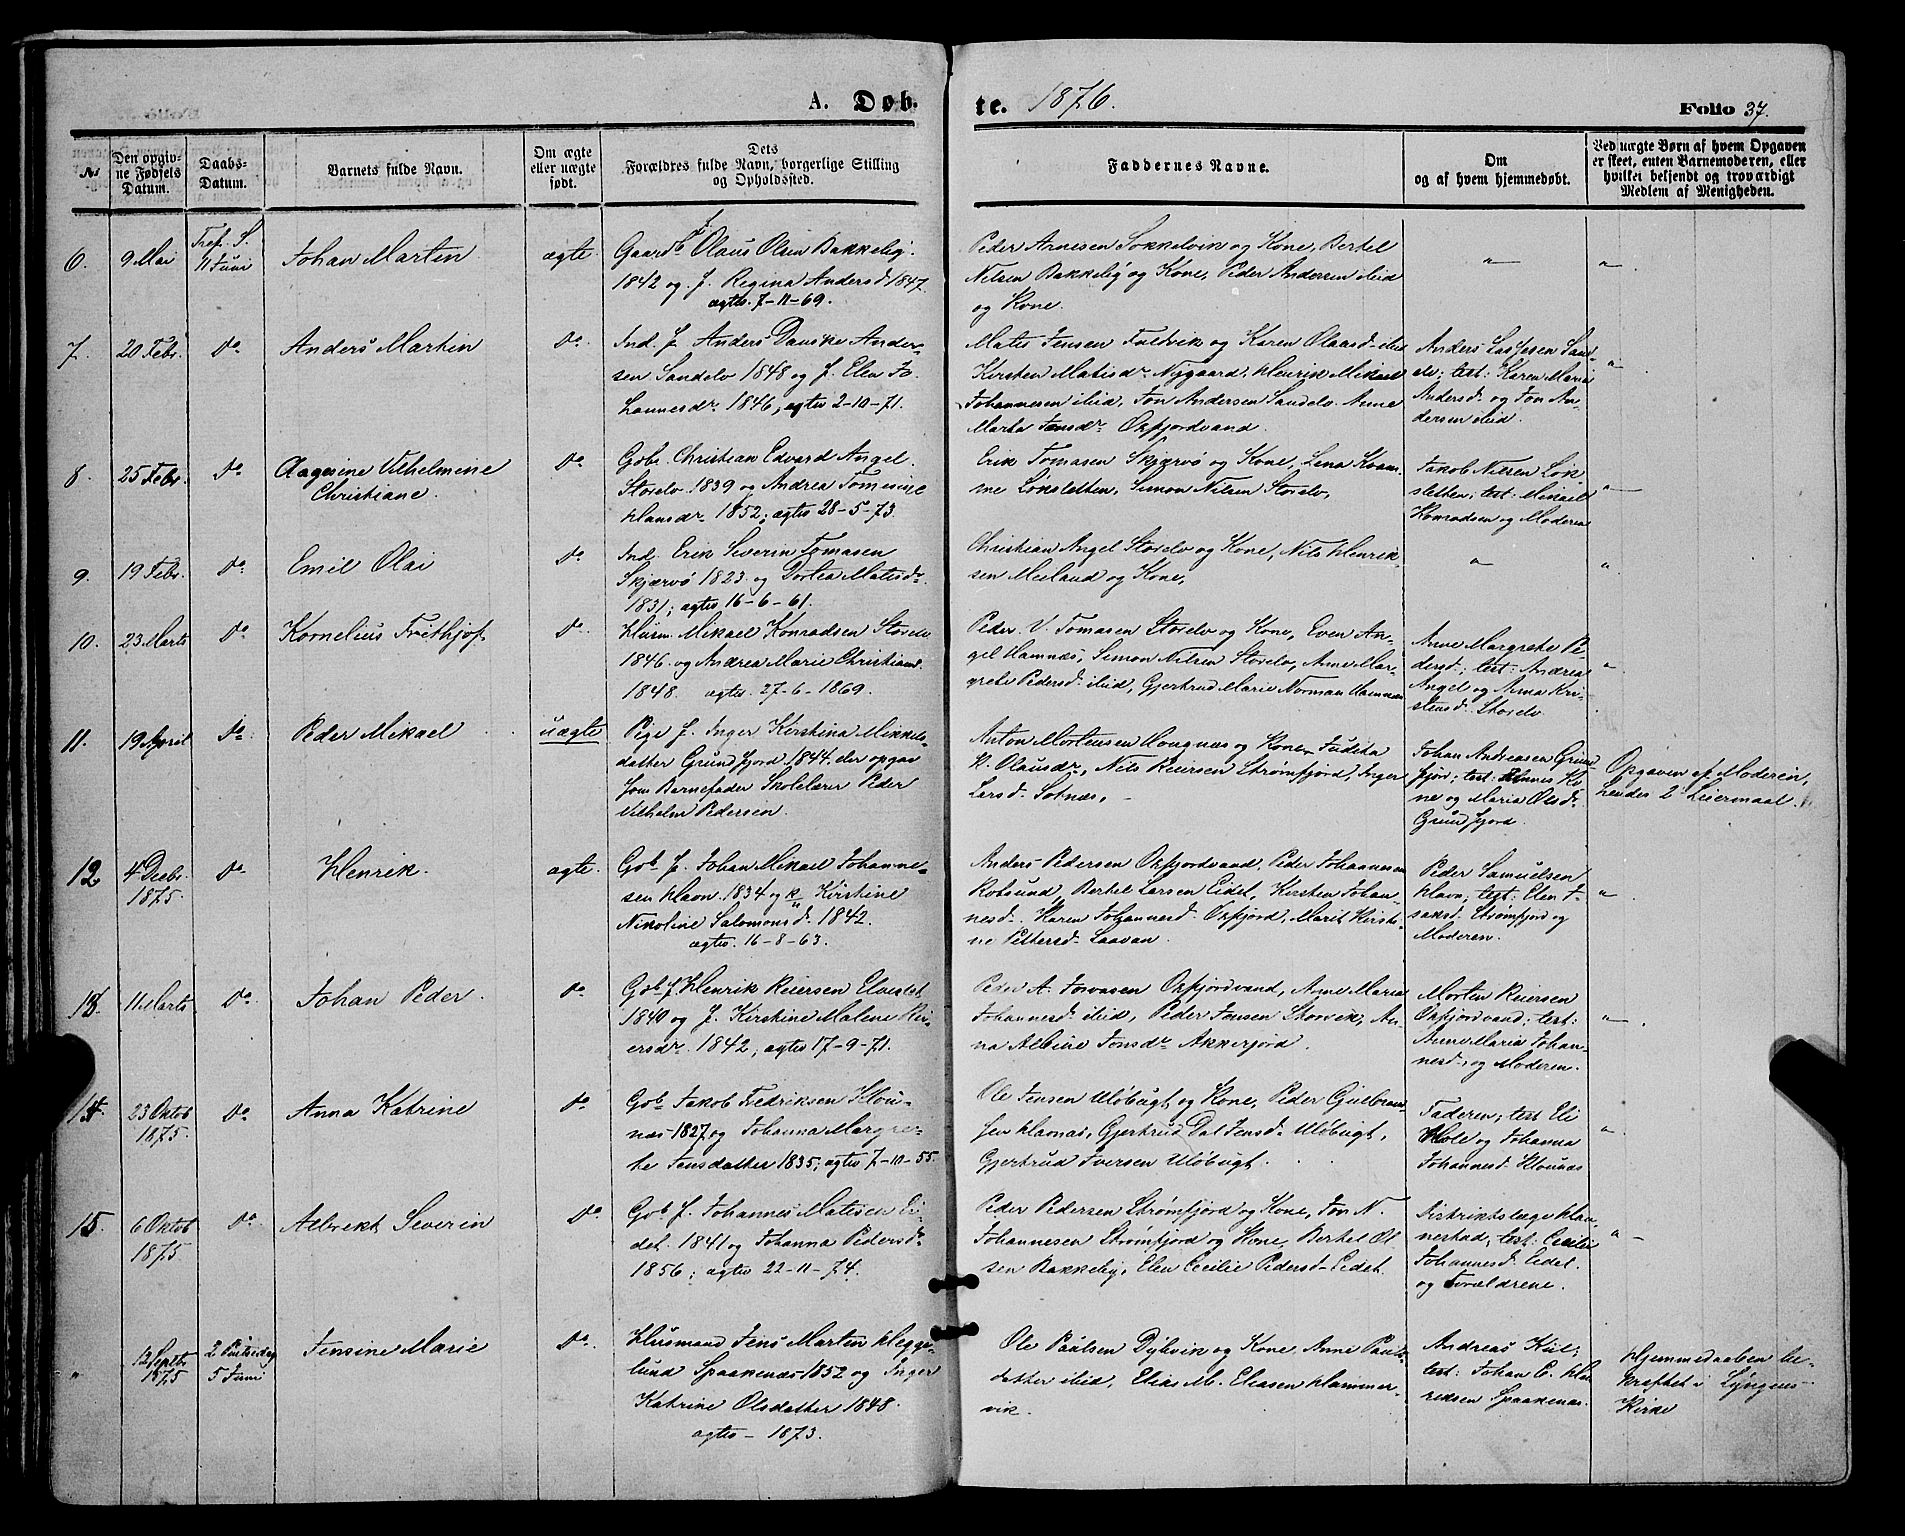 A. Døb-
te. 1876.
Folio 37.
№
Den opgiv-
ne Fødsels
Datum.
Daabs-
Datum.
Barnets fulde Navn.
Om ægte
eller uægte
født.
Dets
Forældres fulde Navn, borgerlige Stilling
og Opholdssted.
Faddernes Navne.
Om
og af hvem hjemmedøbt.
Ved uægte Børn af hvem Opgaven
er skeet, enten Barnemoderen, eller
hvilket bekjendt og troværdigt
Medlem af Menigheden.
6. 9 Mai
Tref. S.
11 Juni
Johan Martin
ægte
Gaardb f Olaus Olsen Bakkeby
1842 og f. Regina Andersd. 1847
ægtev. 7-11-69.
Peder Arnesen Sokkelvik og Kone, Bertel
Nilsen Bakkeby og Kone, Peder Andersen ibid
og Kone.
"
"
7. 20 Febr. Do Anders Martin Do
Ind. f. Anders Danske Ander-
sen Sandelv 1848 og f. Elen Jo-
hannesdr. 1846, ægtev 2-10-71.
Matis Jensen Fuldvik og Karen Olausd. ibid
Kirsten Matisdr Nygaard, Henrik Mikael
Johannesen ibid, Jon Andersen Sandelv. Anne
Marha Jonsdr Oxfjordvand.
Anders Sand-
elv; test: Karen Maria
Andersd. og Jon An-
dersen ibid.
"
8. 25 Febr. Do Aagesine Vilhelmine
Christiane.
Do
Gbr. Christian Edvard Angel
Storelv 1839 og Andrea Tomine
Hansdr. 1852; ægtev 28-5-73.
Erik Tomasen Skjærvø og Kone, Lena
Løksletten, Simon Nilsen Storelv,
Jakob Nilsen Løk-
sletten; test: Mikael
Konradsen og Moderen
"
9. 19 Febr. Do Emil Olai Do
Ind. Erik Severin Tomasen
Skjærvø 1823 og Dortea Matisdr.
1831; ægtev 16-6-61.
Christian Angel Storelv og Kone, Nils Henrik-
sen Meiland og Kone,
"
"
10. 23 Marts Do Kornelius Frethjof Do
Husm. Mikael Konradsen Storelv
1846 og Andrea Marie Christiansd.
1848. ægtev. 27-6-1869.
Peder V. Tomasen Storelv og Kone, Even An-
gel Hamnæs, Simon Nilsen Storelv, Anne Mar-
grete Pedersd. ibid, Gjertrud Marie Norman Hamnæs
Anne Margrete Pe-
dersd; test: Andrea
Angel og Anna Kri-
stensd. Storelv.
"
11. 19 April Do Peder Mikael uægte
Pige f. Inger Kirstina Mikkels-
datter Grundfjord 1844. der opgav
som Barnefader Skolelærer Peder
Vilhelm Pedersen.
Anton Mortensen Hougnæs og Kone, Judita
K. Olausdr, Nils Reiersen Strømfjord, Inger
Larsd. Sotnæs, -
Johan Andreasen Grund-
fjord; test: Hannes Ko-
ne og Maria Olsdr.
Grundfjord.
Opgaven af Moderen,
hendes 2 Leiermaal.
12 4 Decbr.
1875.
Do Henrik. ægte.
Gbr f. Johan Mikael Johanne-
sen Havn 1834 og k Kirstine
Nikoline Salomonsd. 1842.
ægtev. 16-8-63.
Anders Pedersen Oxfjordvand, Peder Johannesen
Rotsund, Bertel Larsen Eidet, Kirsten Johan-
nesd. Karen Johannesd. Oxfjord, Marit Kirsti-
ne Pettersd. Laavan.
Peder Samuelsen
Havn; test: Elen I-
saksd. Strømfjord og
Moderen.
"
13. 11 Marts Do Johan Peder. Do
Gbr f Henrik Reiersen Elvestet
1840 og f. Kirstine Malene Rei-
ersdr. 1842, ægtev 17-9-71.
Peder A. Oxfjordvand, Anne Maria
Johannesd. ibid, Peder Jensen Storvik, An-
na Albine Jonsdr Akkerfjord.
Morten Reiersen
Oxfjordvand; test:
Anne Maria Johan-
nesd. og Moderen.
"
14 23 Oktob
1875.
Do Anna Katrine Do
Gbr Jakob Fredriksen Hou-
næs 1827 og Johanna Margre-
the Jensdatter 1835; ægtev 7-10-55.
Ole Jensen Uløbugt og Kone, Peder Gulbrand-
sen Havnæs, Gjertrud Dal Jensd. Uløbugt,
Gjertrud Iversen Uløbugt.
Faderen; test Eli
Hole og Johanna
Johannesd.
"
15. 6 Oktob
1875
Do Albrekt Severin Do
Gbr f. Johannes Matisen Ei-
det. 1841 og Johanna Pedersdr
1856; ægtev 22-11-74.
Peder Pedersen Strømfjord og Kone, Jon N.
Johannesen Strømfjord og Kone, Bertel Ol-
sen Bakkeby, Elen Cecilie Pedersd. Eidet.
Distriktslæge Han-
nestad; test: Cecilie
Johannesd. Eidet.
og Forældrene.
"
" 12 Septbr
1875
2 Pintsedag
5 Juni
Jensine Marie Do
Husmand Jens Martin Hegge-
lund Spaakenæs 1852 og Inger
Katrine Olsdatter 1848.
ægtev - 1873.
Ole Paulsen Dybvik og Kone. Anne Pauls-
datter ibid, Elias M. Eliasen Hammer-
vik.
Andreas Kiil;
test: Johan
Spaakenæs.
Hjemmedaaben be-
kræftet i Lyngens
Kirke